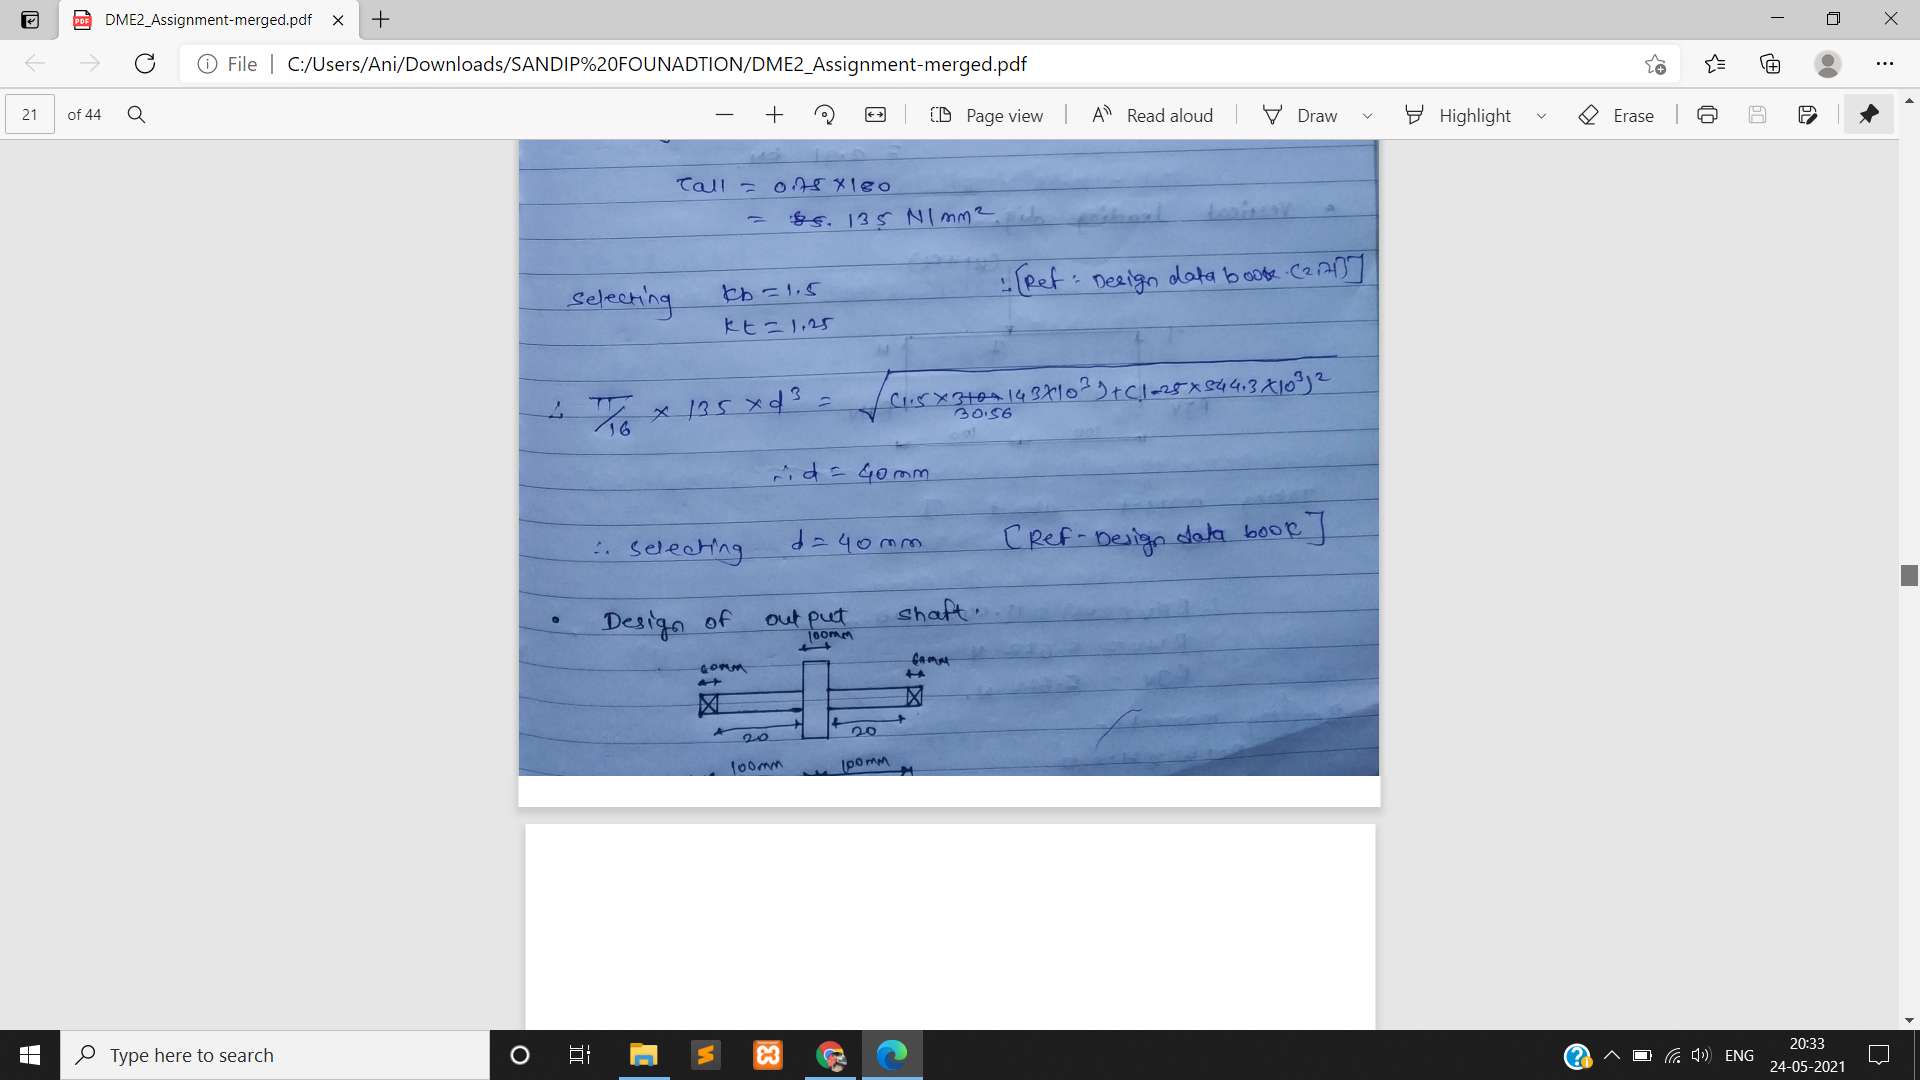 DME2_Assignment-merged.pdf
File | C:/Users/Ani/Downloads/SANDIP%20FOUNADTION/DME2_Assignment-merged.pdf
21 of 44 Page view Read aloud Draw Highlight Erase
τall = 0.75 × 180
= 135 N/mm²
selecting kb = 1.5 ∴ [Ref: Design data book
kt = 1.25
∴ π/16 × 135 × d³ = √(1.5 × 143×10³)+(1.25×544.3×10³)²
30.56
∴ d = 40mm
∴ selecting d = 40mm [Ref - Design data book]
• Design of output shaft.
100mm
60mm 60mm
20 20
100mm 100mm
Type here to search
ENG
20:33
24-05-2021